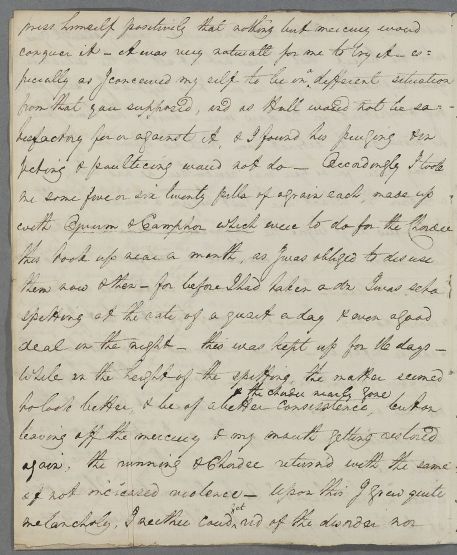 press himself positively that nothing but mercury would
conquer it – it was very naturall for me to try it – es=
pecially as I conceived my self to be in a different situation
from that you supposed, and as Hull would not be sa=
tisfactory for or against it, & I found his purging & in
jecting & poulticing would not do – Accordingly I took
me some five or six twenty pills of a grain each, made up
with Opium & Camphor which were to do for the Chordee
this took up near a month, as I was obliged to disuse
them now & then – for before I had taken a dz I was
spitting at the rate of a quart a day & even a good
deal in the night – this was kept up for 16 days –
While in the height of the spitting, the matter seemed
to look better, & be of a better consistence, & the chordee nearly gone but on
leaving off the mercury & my mouth getting restored
again, the running & Chordee returned with the same
if not increased violence – Upon this I grew quite
melancholy, I neither could get rid of the disorder nor